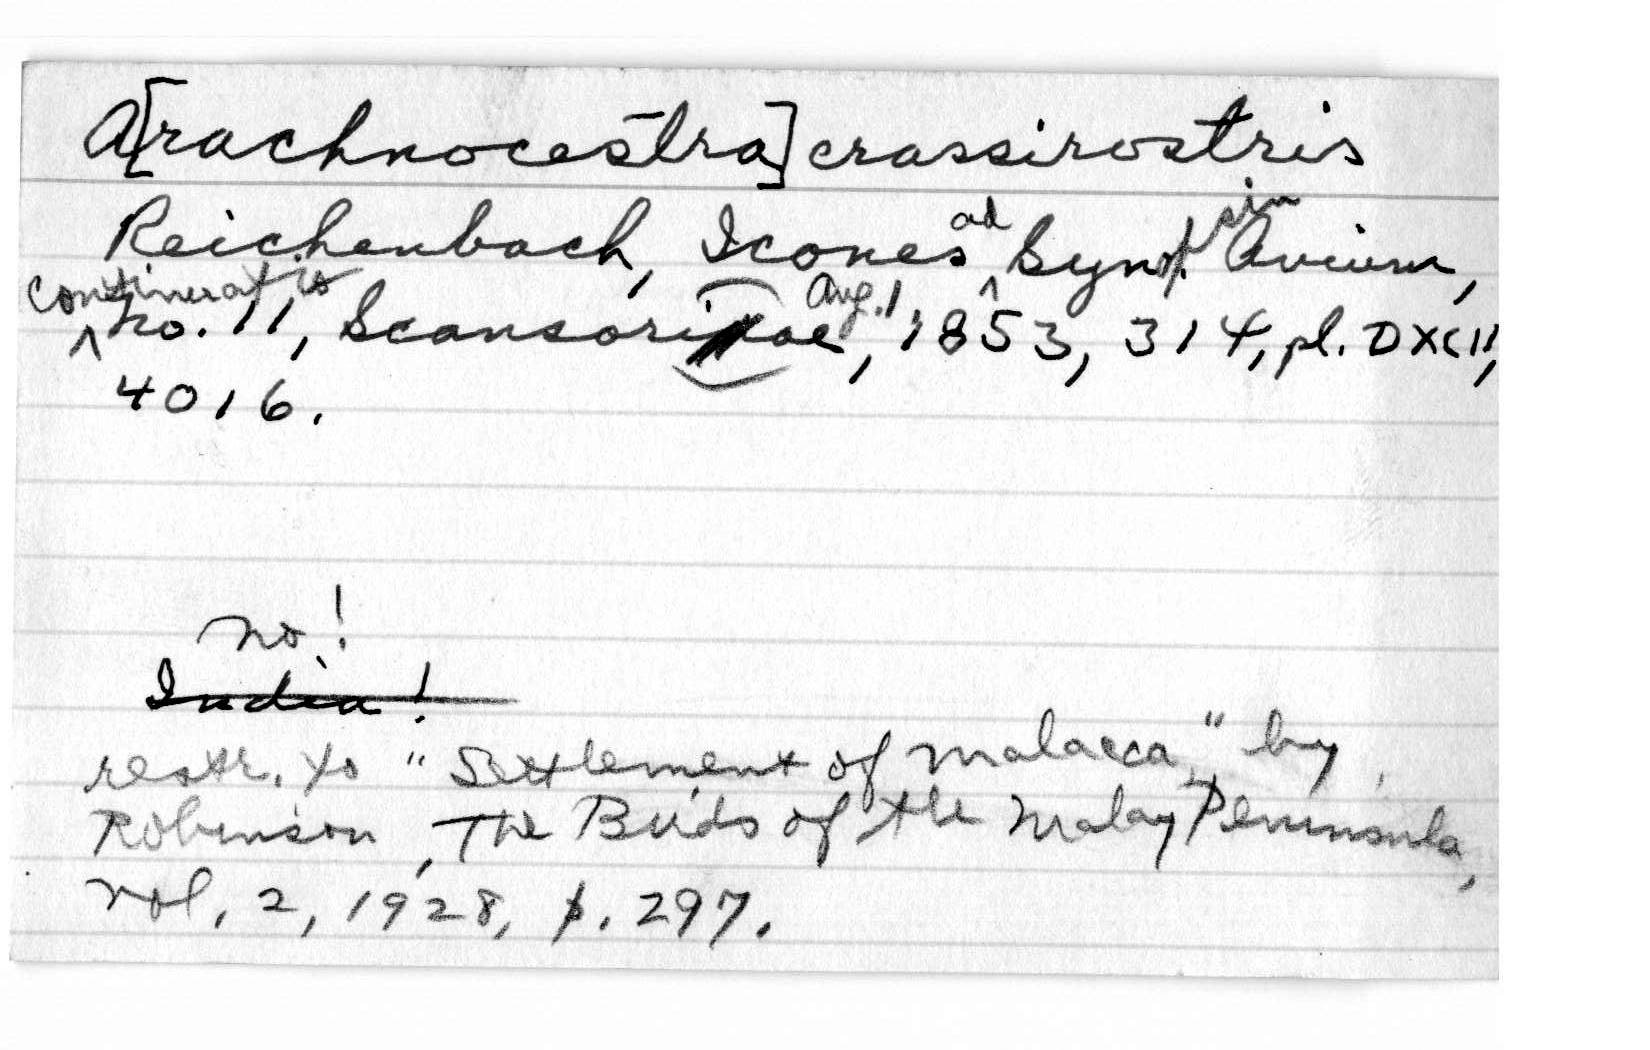 A[rachnocestra] crassirostris
Reichenbach, Icones ad Synopsin Avium,
continuatio No. 11, Scansoriae, Aug. 1, 1853, 314, pl. DXCII,
4016.
no!
India!
restr. to "Settlement of Malacca," by
Robinson, The Birds of the Malay Peninsula,
vol. 2, 1928, p. 297.